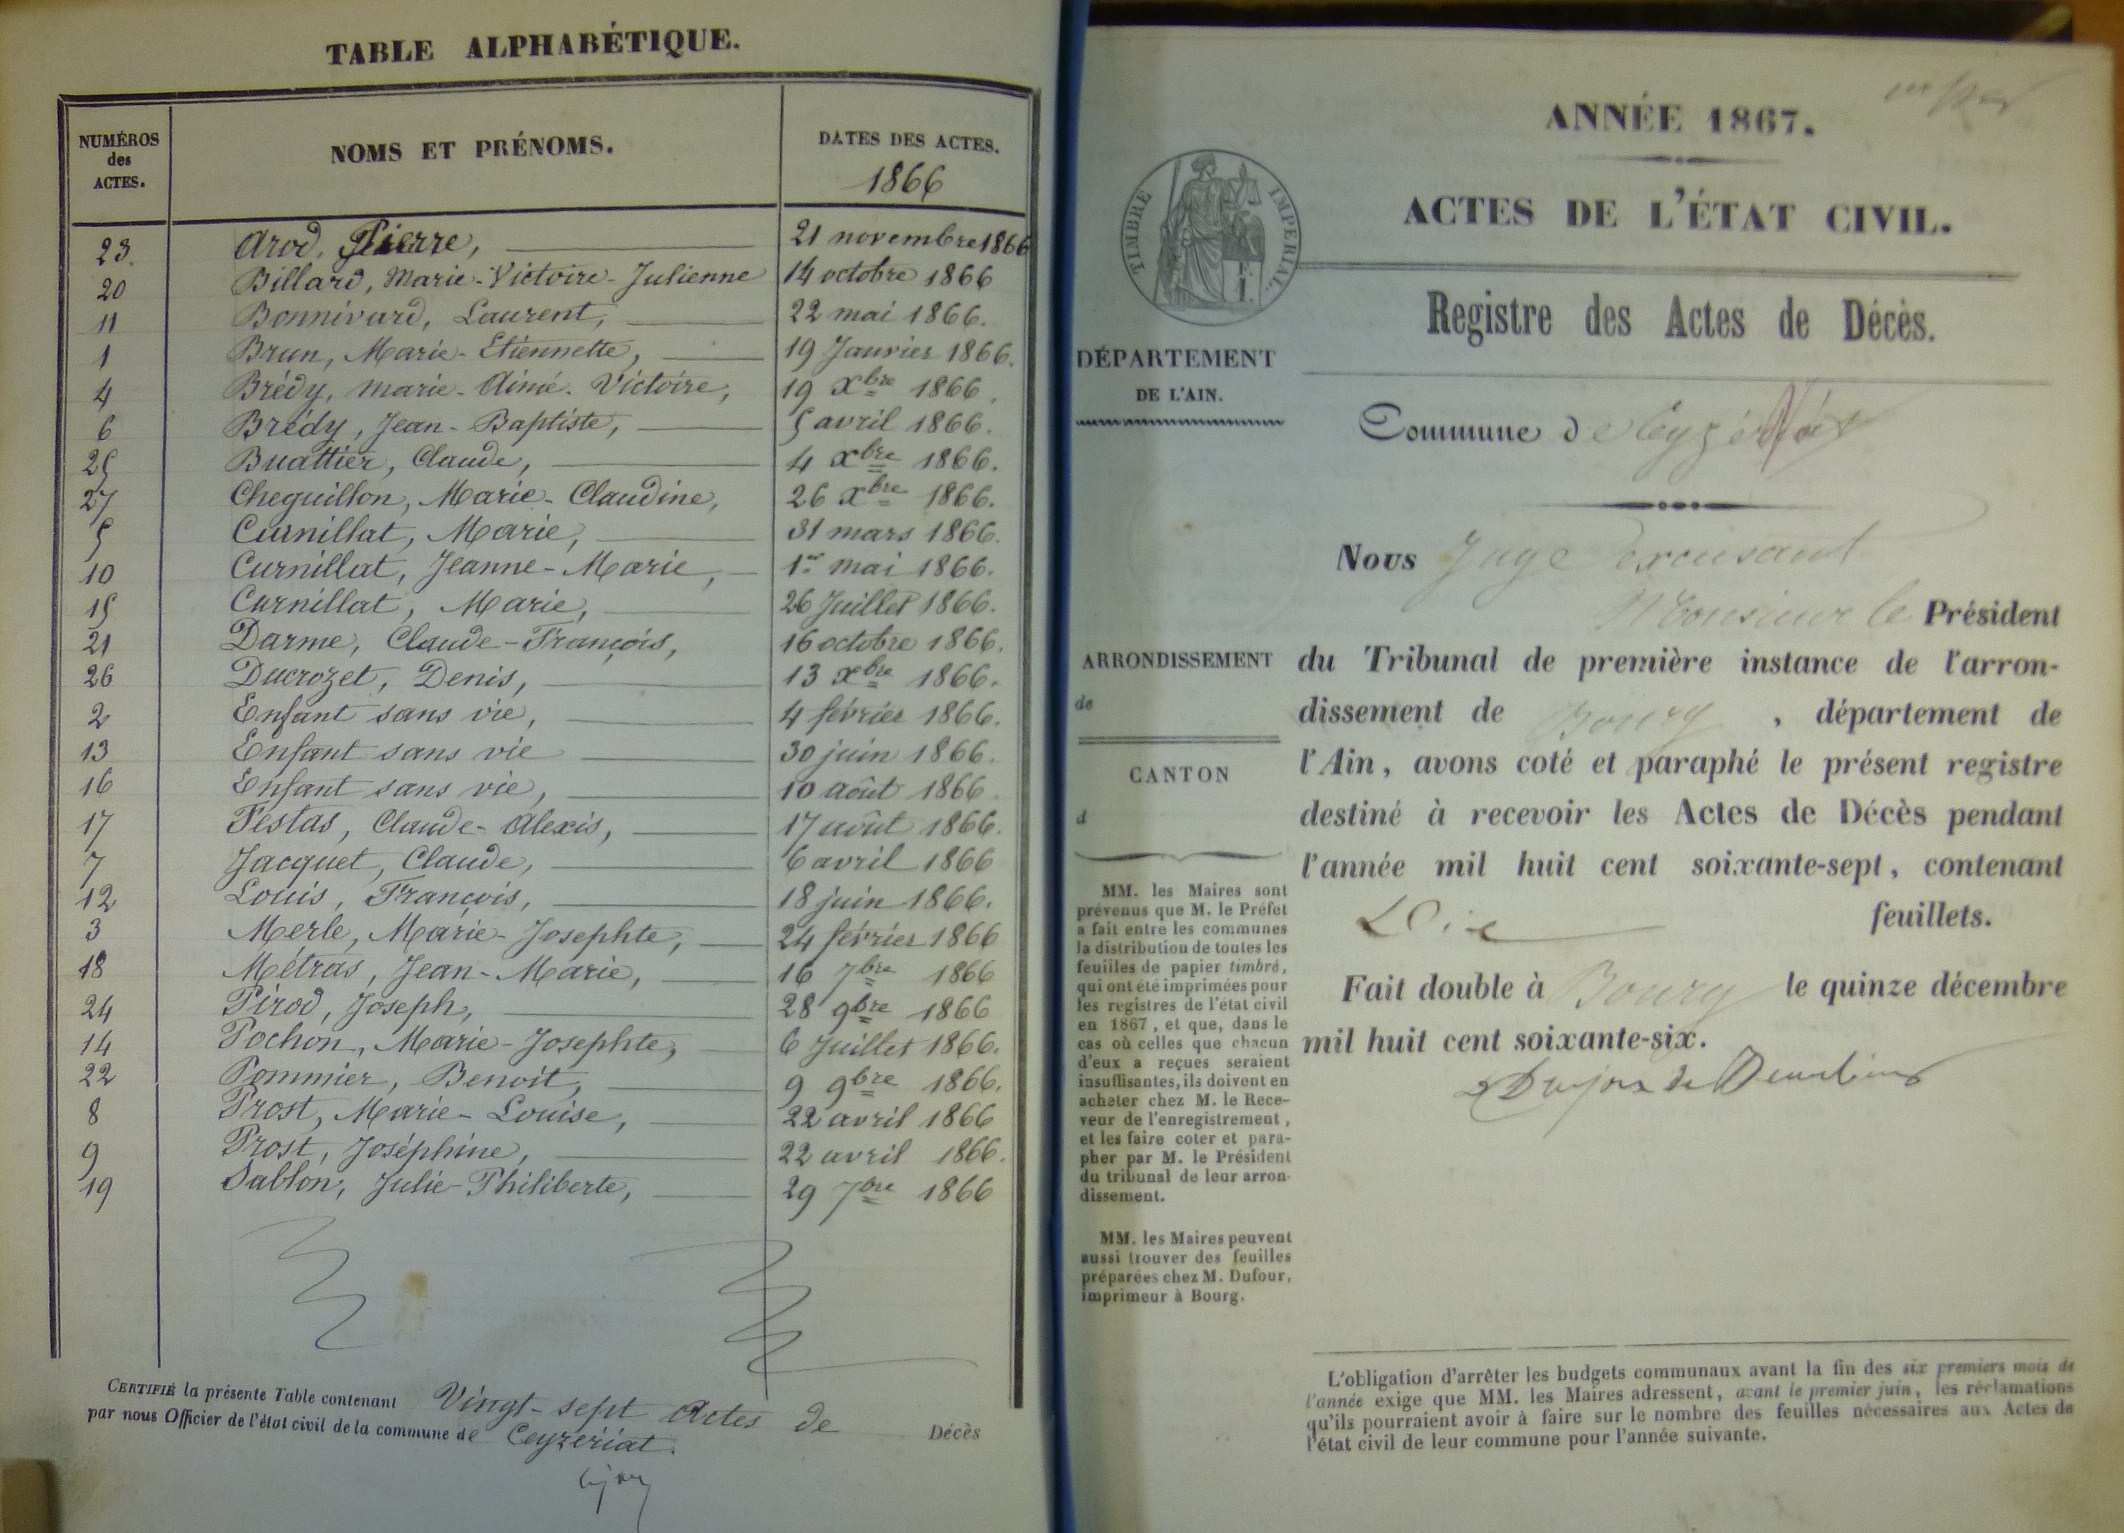 TABLE ALPHABÉTIQUE.
NUMÉROS des ACTES. NOMS ET PRÉNOMS. DATES DES ACTES.
1866
23. Arod, Pierre, 21 novembre 1866
20 Billard, Marie-Victoire-Julienne 14 octobre 1866
11 Bonnivard, Laurent, 22 mai 1866.
1 Brun, Marie-Etiennette, 19 Janvier 1866.
4 Brédy, Marie-Aimé-Victoire, 19 Xbre 1866.
6 Brédy, Jean-Baptiste, 5 avril 1866.
25 Buattier, Claude, 4 Xbre 1866.
27 Cheguillon, Marie-Claudine, 26 Xbre 1866.
5 Curnillat, Marie, 31 mars 1866.
10 Curnillat, Jeanne-Marie, 1er mai 1866.
15 Curnillat, Marie, 26 Juillet 1866.
21 Darme, Claude-François, 16 octobre 1866.
26 Ducrozet, Denis, 13 Xbre 1866.
2 Enfant sans vie, 4 février 1866.
13 Enfant sans vie 30 juin 1866.
16 Enfant sans vie, 10 août 1866
17 Festas, Claude-Alexis, 17 août 1866.
7 Jacquet, Claude, 6 avril 1866
12 Louis, François, 18 juin 1866.
3 Merle, Marie-Josephte, 24 février 1866
18 Métras, Jean-Marie, 16 7bre 1866
24 Pirod, Joseph, 28 9bre 1866
14 Pochon, Marie-Josephte, 6 Juillet 1866.
22 Pommier, Benoit, 9 9bre 1866.
8 Prost, Marie-Louise, 22 avril 1866
9 Prost, Joséphine, 22 avril 1866.
19 Sablon, Julie-Philiberte, 29 7bre 1866
CERTIFIÉ la présente Table contenant Vingt-sept Actes de Décès
par nous Officier de l'état civil de la commune de Ceyzériat.
ANNÉE 1867.
ACTES DE L'ÉTAT CIVIL.
TIMBRE IMPÉRIAL.
Registre des Actes de Décès.
DÉPARTEMENT
DE L'AIN.
Commune de Ceyzériat
Nous Juge
Monsieur le Président
ARRONDISSEMENT
de
CANTON
d
du Tribunal de première instance de l'arron-
dissement de Bourg, département de
l'Ain, avons coté et paraphé le présent registre
destiné à recevoir les Actes de Décès pendant
l'année mil huit cent soixante-sept, contenant
feuillets.
Fait double à Bourg le quinze décembre
mil huit cent soixante-six.
MM. les Maires sont
prévenus que M. le Préfet
a fait entre les communes
la distribution de toutes les
feuilles de papier timbré,
qui ont été imprimées pour
les registres de l'état civil
en 1867, et que, dans le
cas où celles que chacun
d'eux a reçues seraient
insuffisantes, ils doivent en
acheter chez M. le Rece-
veur de l'enregistrement,
et les faire coter et para-
pher par M. le Président
du tribunal de leur arron-
dissement.
MM. les Maires peuvent
aussi trouver des feuilles
préparées chez M. Dufour,
imprimeur à Bourg.
L'obligation d'arrêter les budgets communaux avant la fin des six premiers mois de
l'année exige que MM. les Maires adressent, avant le premier juin, les réclamations
qu'ils pourraient avoir à faire sur le nombre des feuilles nécessaires aux Actes de
l'état civil de leur commune pour l'année suivante.